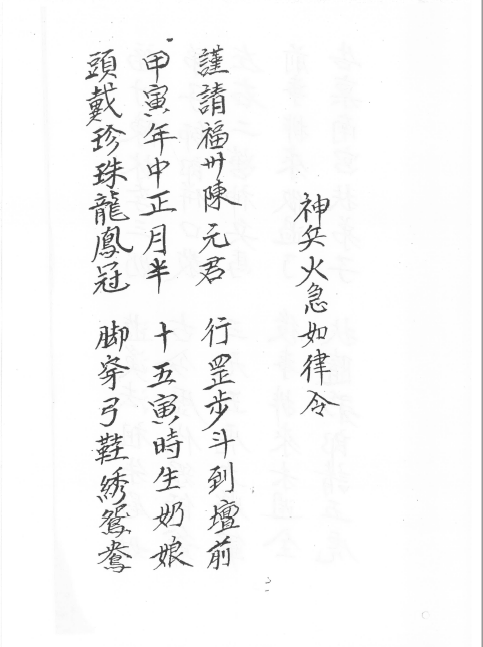 神兵火急如律令
謹請福州陳元君 行罡步斗到壇前
甲寅年中正月半 十五寅時生奶娘
頭戴珍珠龍鳳冠 脚穿弓鞋綉鴛鴦